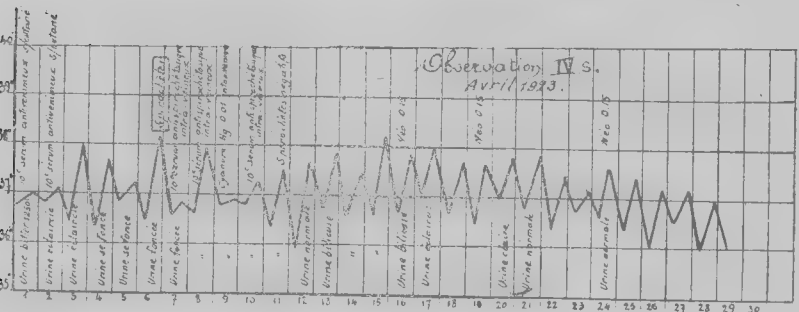 Observation IV s.
Avril 1923.
40°
39°
38°
37°
36°
35°
10cc serum antivenimeux s/cutané
10cc serum antivenimeux s/cutané
10cc serum antispirochetique intra veineux
10cc serum antispirochetique intra veineux
Cyanure Hg 0.01 intraveineux
10cc serum antispirochetique intra veineux
Néo 0.15
Néo 0.15
Néo 0.15
Urine
Urine eclaircie
Urine eclaircie
Urine se fonce
Urine se fonce
Urine foncée
Urine foncée
"
"
"
"
Urine normale
Urine bilieuse
"
"
Urine bilieuse
Urine eclaircie
Urine claire
Urine normale
Urine normale
1 2 3 4 5 6 7 8 9 10 11 12 13 14 15 16 17 18 19 20 21 22 23 24 25 26 27 28 29 30